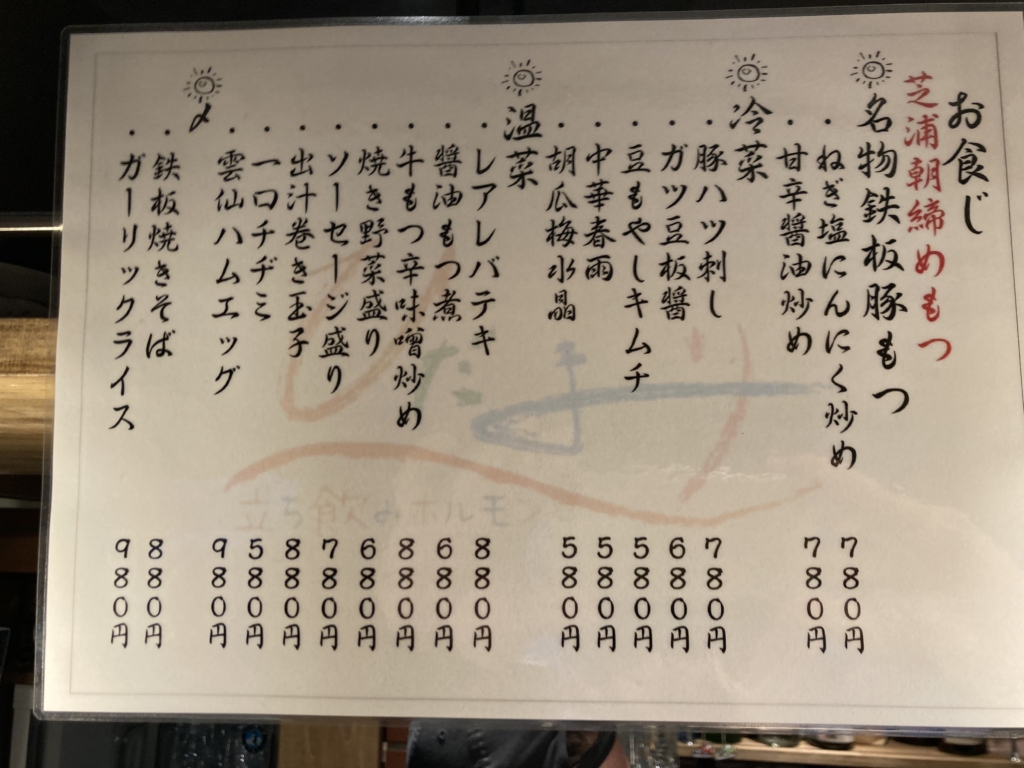 お食じ
芝浦朝締めもつ
名物鉄板豚もつ
・ねぎ塩にんにく炒め 780円
・甘辛醤油炒め 780円
冷菜
・豚ハツ刺し 780円
・ガツ豆板醤 680円
・豆もやしキムチ 580円
・中華春雨 580円
・胡瓜梅水晶 580円
温菜
・レアレバテキ 880円
・醤油もつ煮 680円
・牛もつ辛味噌炒め 880円
・焼き野菜盛り 680円
・ソーセージ盛り 780円
・出汁巻き玉子 880円
・一口チヂミ 580円
・雲仙ハムエッグ 980円
〆
・鉄板焼きそば 880円
・ガーリックライス 980円
ひだまり
立ち飲みホルモン